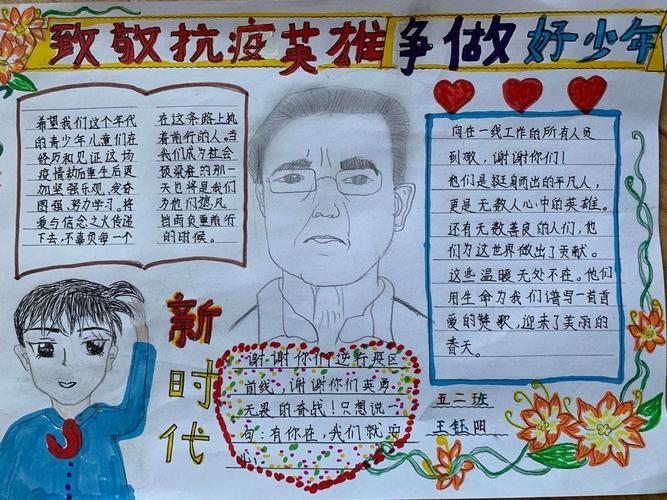 致敬抗疫英雄争做好少年
希望我们这个年代
的青少年儿童们在
经历和见证这场
疫情劫后重生后更
加坚强乐观、发奋
图强、努力学习。将
爱与信念之火传递
下去,不辜负每一个
在这条路上执
着前行的人。当
我们成为社会
顶梁柱的那一
天也将是我们
为他们遮风
挡雨负重前行
的时候。
向在一线工作的所有人员
致敬,谢谢你们!
他们是挺身而出的平凡人,
更是无数人心中的英雄。
还有无数善良的人们,他
们为这世界做出了贡献。
这些温暖无处不在。他们
用生命为我们谱写一首首
爱的赞歌,迎来了美丽的
春天。
新时代
谢谢你们逆行疫区
前线,谢谢你们英勇
无畏的奋战!只想说
一句:有你在,我们就安
心
五二班
王钰阳